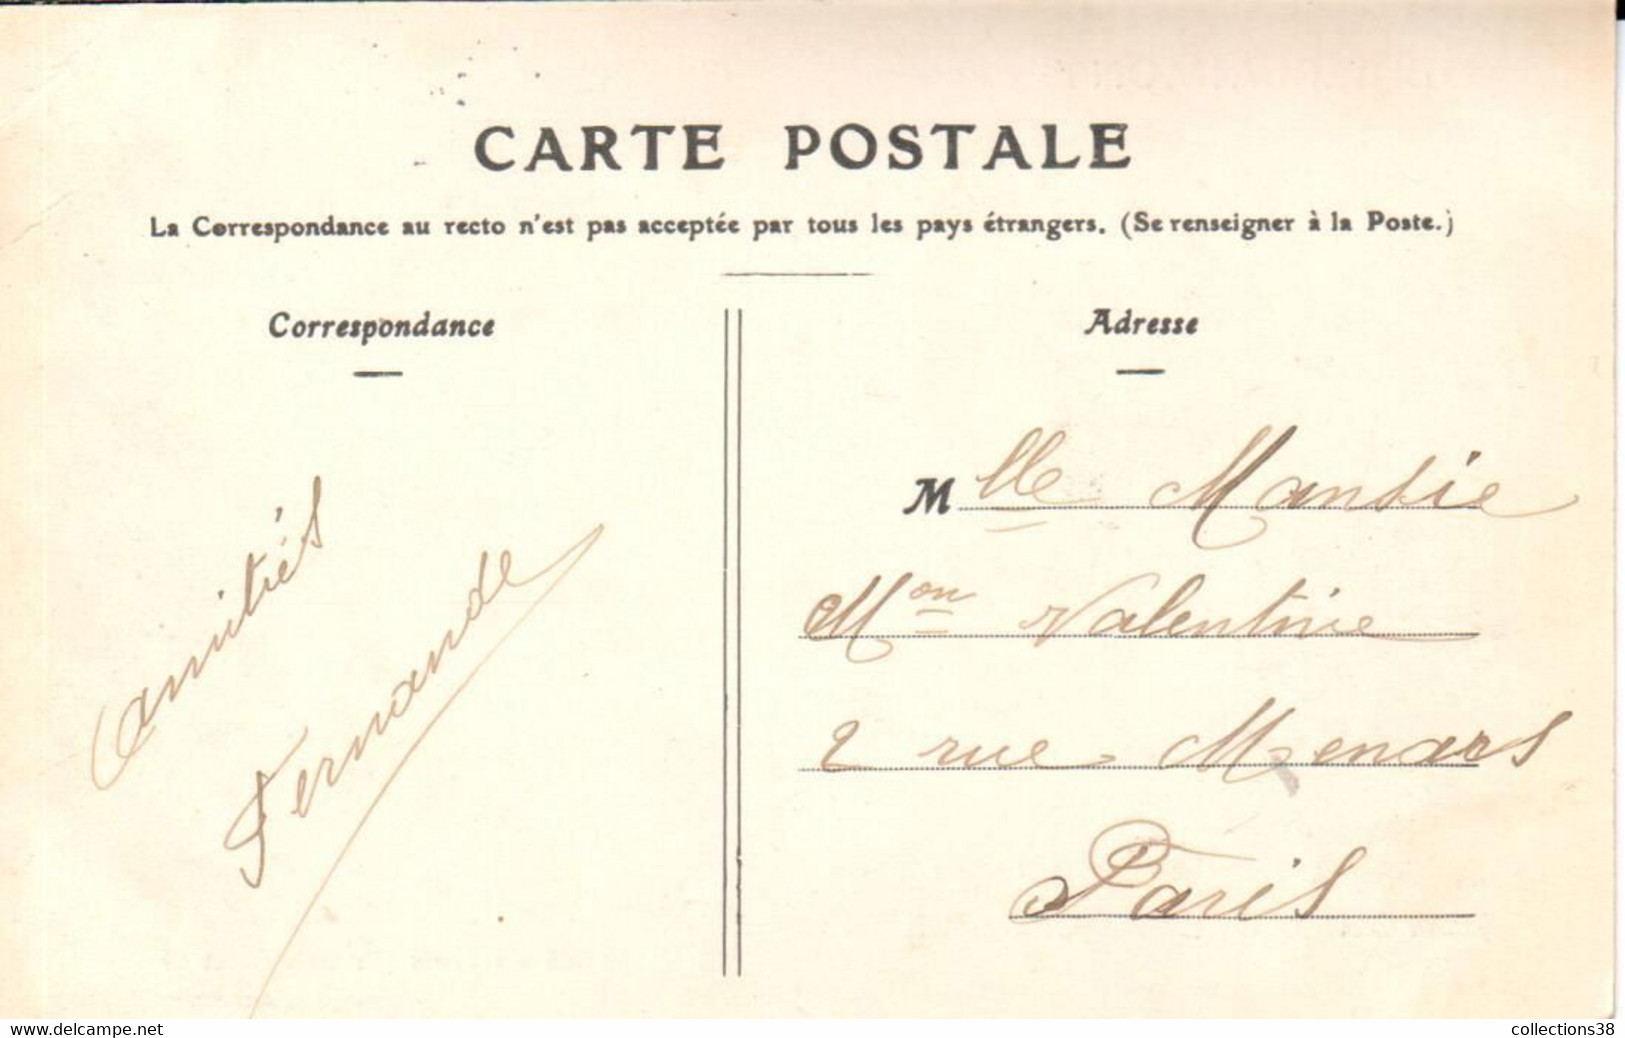 CARTE POSTALE
La Correspondance au recto n'est pas acceptée par tous les pays étrangers. (Se renseigner à la Poste.)
Correspondance
Amitiés
Fernande
Adresse
Mlle Mansie
Mon Valentine
2 rue Menars
Paris
www.delcampe.net
collections38